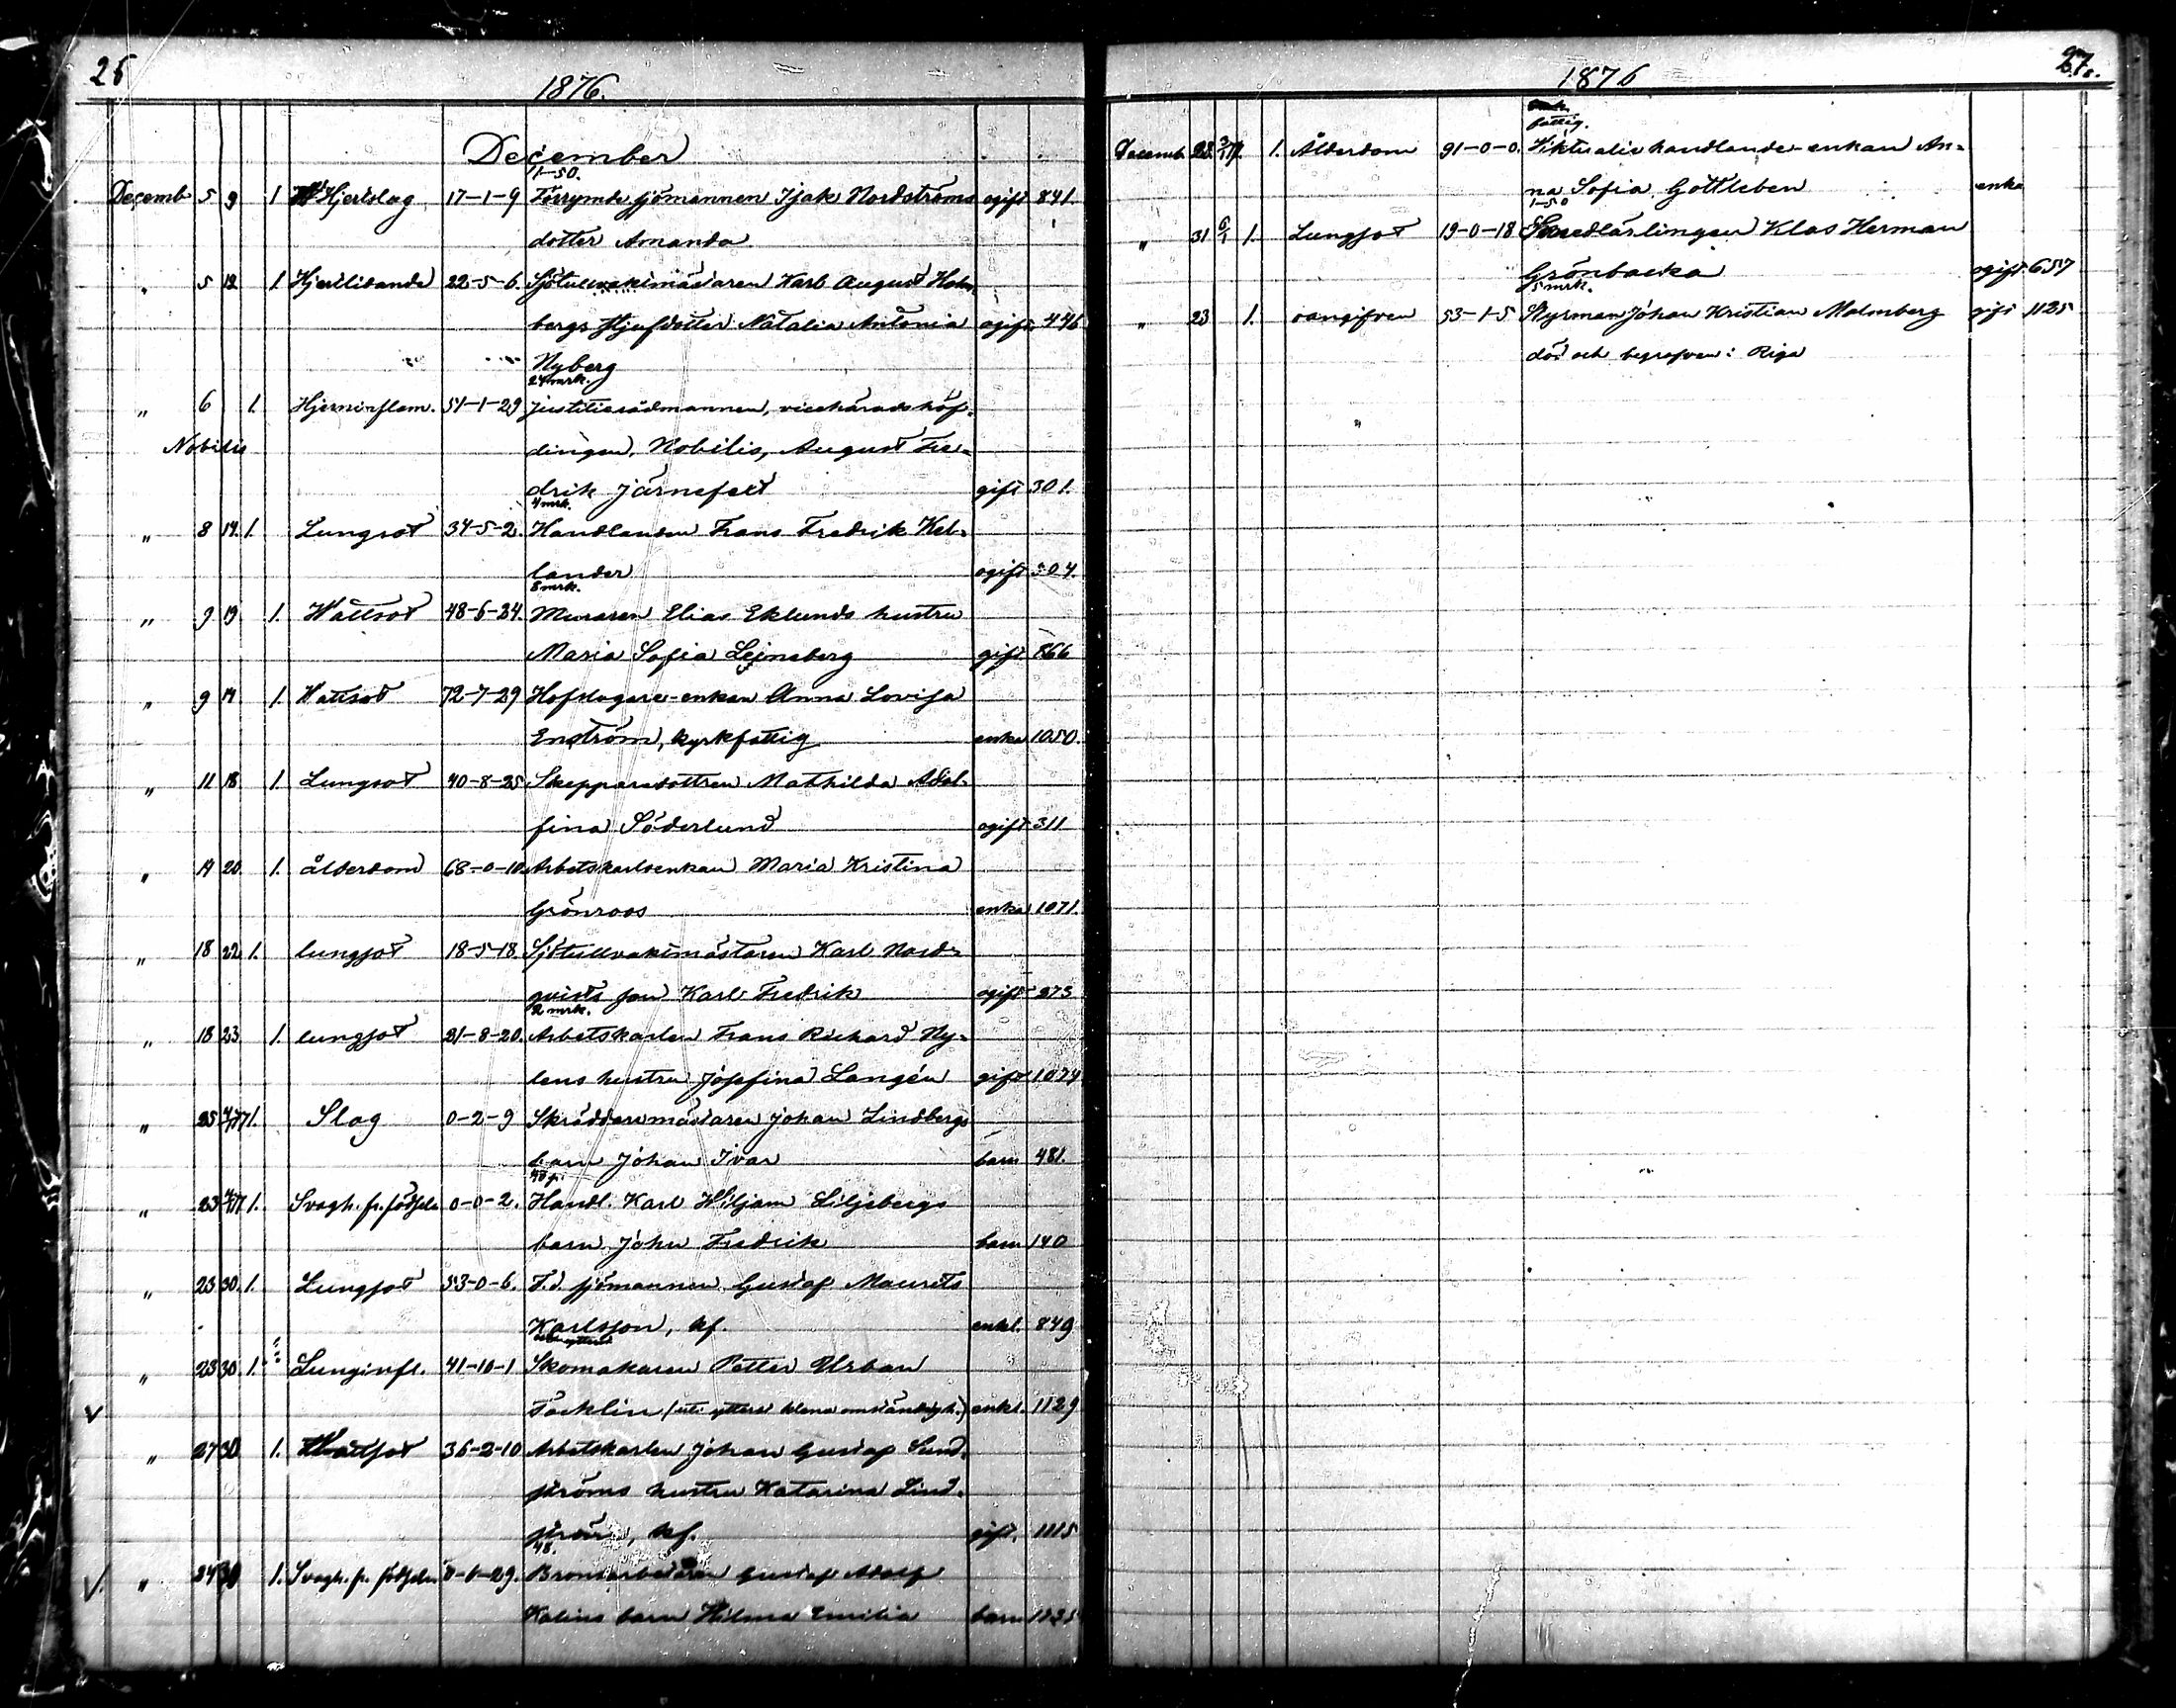 26
1876.
December
1-50.
Decemb 5 9 1 Hjertslag 17-1-9 Förrymde sjömannen Isak Nordströms ogift 841.
dotter Amanda
" 5 12 1 Hjertlidande 22-5-6. Sjötullvaktmästaren Karl August Holm-
bergs styfdotter Natalia Antonia ogift. 446
Nyberg
24 mrk.
" 6 1. Hjerninflam. 51-1-29 Justitierådmannen, vicehäradshöf-
Nobilis dingen, Nobilis, August Fre-
drik Järnefelt gift 301.
4 mrk.
" 8 14. 1. Lungsot 34-5-2. Handlanden Frans Fredrik Hel-
lander ogift 304.
8 mrk.
" 9 19 1. Wattsot 48-6-24. Muraren Elias Eklunds hustru
Maria Sofia Lejneberg gift 866
" 9 14 1. Wattsot 72-7-29 Hofslagare-enkan Anna Lovisa
Enström, kyrkfattig enka 1050.
" 11 18 1. Lungsot 40-8-25 Skepparedottren Mathilda Adol-
fina Söderlund ogift 311
" 14 20 1. ålderdom 68-0-10. Arbetskarlsenkan Maria Kristina
Grönroos enka 1071.
" 18 22 1. lungsot 18-5-18. Sjötullvaktmästaren Karl Nord-
qvists son Karl Fredrik ogift 273
2 mrk.
" 18 23 1. lungsot 21-8-20. Arbetskarlen Frans Rickard Ny-
lens hustru Josefina Langén gift 1074
" 25 1. Slag 0-2-9 Skräddaremästaren Johan Lindbergs
barn Johan Ivar barn 481.
40 p.
" 23 1. Svagh. fr. födseln 0-0-2. Handl. Karl Wiljam Liljebergs
barn John Fredrik barn 140
" 23 30. 1. Lungsot 53-0-6. F.d. sjömannen Gustaf Maurits
Karlsson, kf. enkl. 849
" 23 30. 1. Lunginfl. 41-10-1 Skomakaren Petter Urban
v Tacklin (uti ytterst klena omständigh.) enkl. 1129
" 27 30 1. Wattsot 36-2-10 Arbetskarlen Johan Gustaf Sund-
ströms hustru Katarina Lind-
ström, kf. gift. 1115
48.
v. " 24 30 1. Svagh. fr. födseln 0-0-29. Bromsarbetaren Gustaf Adolf
Kalins barn Hilma Emilia barn 1235
27.
1876
fattig.
Decemb. 28. 1. Ålderdom 91-0-0. Viktualiehandlande-enkan An-
na Sofia Gottleben enka
1-50
" 31 6/1 1. Lungsot 19-0-18 Smedlärlingen Klas Herman
Grönbacka ogift 657
5 mrk.
" 23 1. oangifven 53-1-5 Styrman Johan Kristian Malmberg gift 1125
död och begrafven i Riga
"